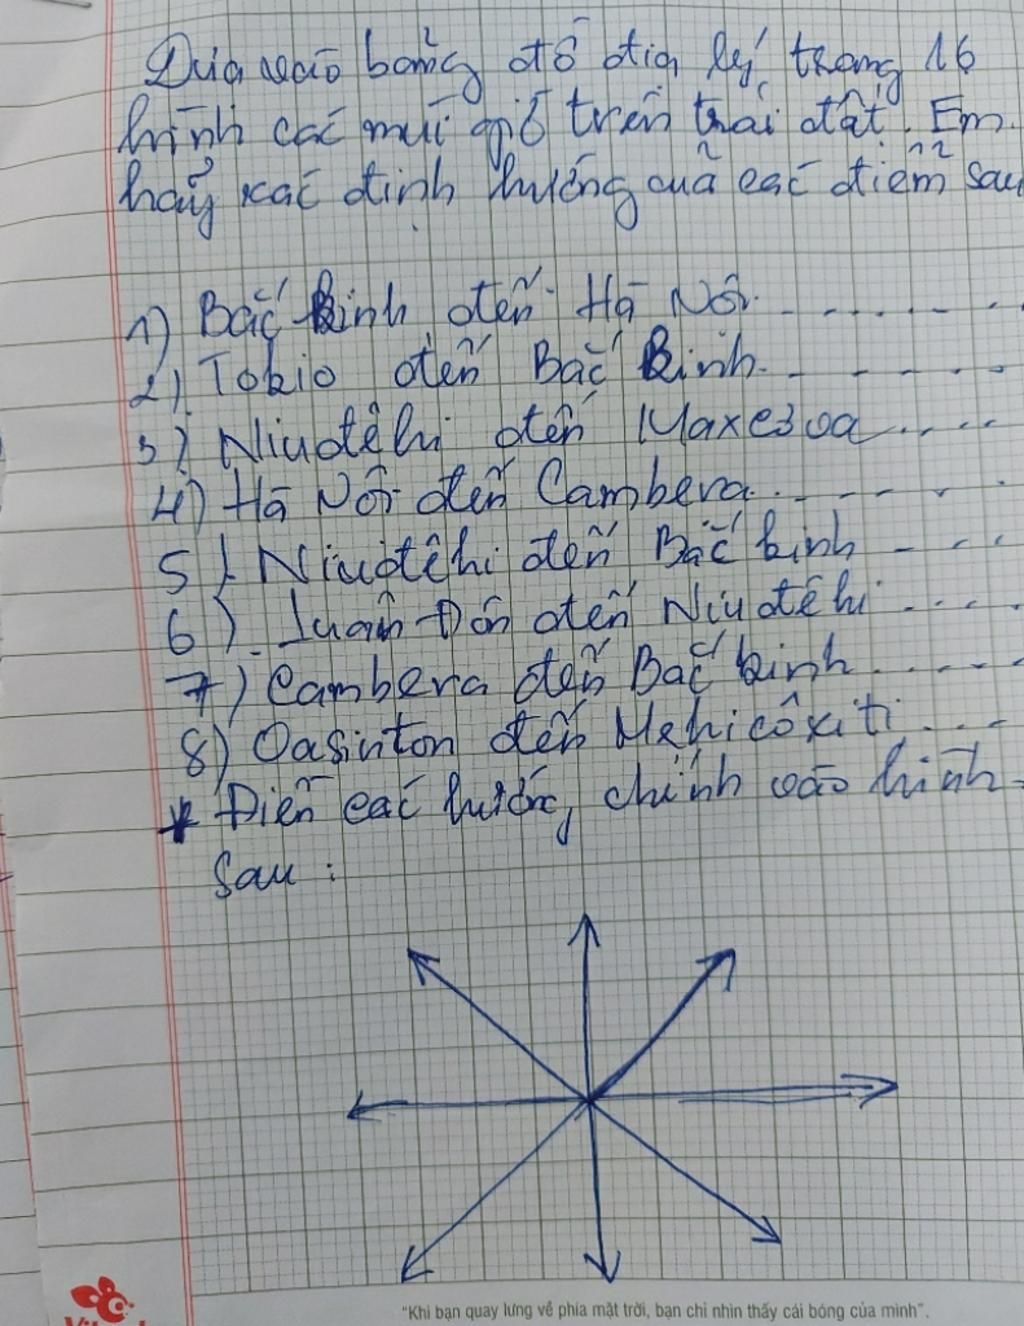 Dựa vào bảng đồ địa lý trang 16
hình các múi giờ trên trái đất. Em
hãy xác định hướng của các điểm sau
1) Bắc Kinh đến Hà Nội.........
2) Tokio đến Bắc Kinh.......
3) Niuđêli đến Maxcơva.....
4) Hà Nội đến Cambera........
5) Niuđêhi đến Bắc kinh - - - -
6) Luân Đôn đến Niuđêhi....
7) Cambera đến Bắc kinh.....
8) Oasinton đến Mêhicôxiti...
* Điền các hướng chính vào hình
sau :
"Khi bạn quay lưng về phía mặt trời, bạn chỉ nhìn thấy cái bóng của mình".